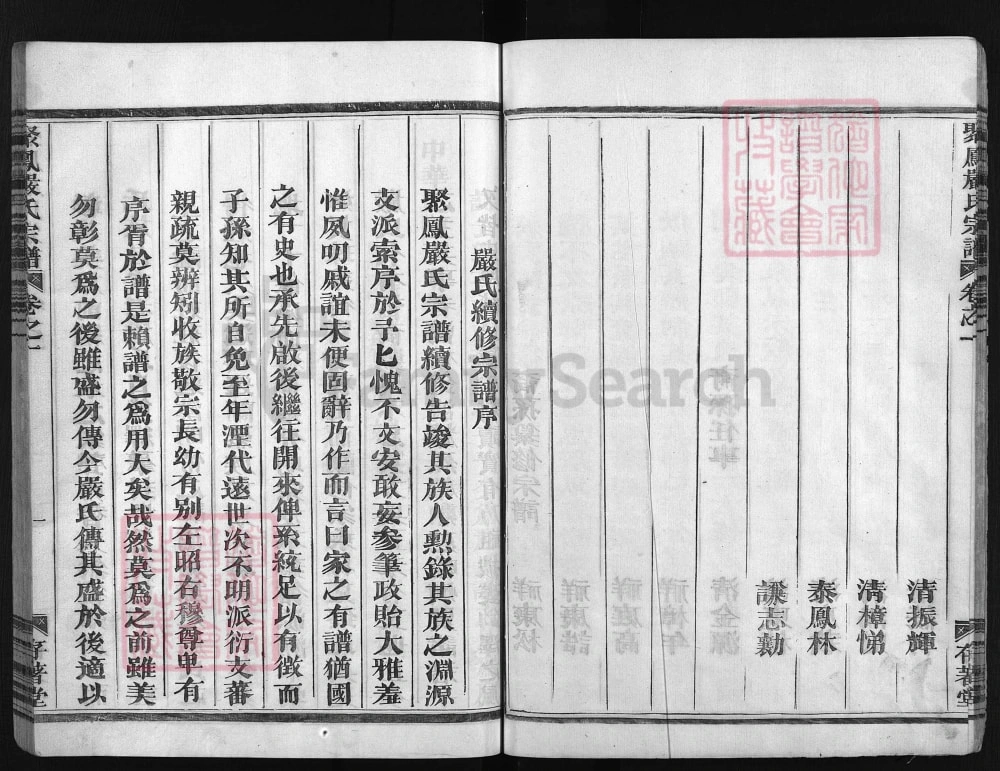 聚鳳嚴氏宗譜 卷之一
清振輝
清樟悌
泰鳳林
謙志勤
嚴氏續修宗譜序
聚鳳嚴氏宗譜續修告竣其族人勲錄其族之淵源
支派索序於予匕愧不文安敢妄參筆政貽大雅羞
惟夙明戚誼未便固辭乃作而言曰家之有譜猶國
之有史也承先啟後繼往開來俾系統足以有徵而
子孫知其所自免至年湮代遠世次不明派衍支蕃
親疏莫辨矧收族敬宗長幼有別左昭右穆尊卑有
序胥於譜是賴譜之為用大矣哉然莫為之前雖美
勿彰莫為之後雖盛勿傳今嚴氏傳其盛於後適以
聚鳳嚴氏宗譜 卷之一 一
FamilySearch